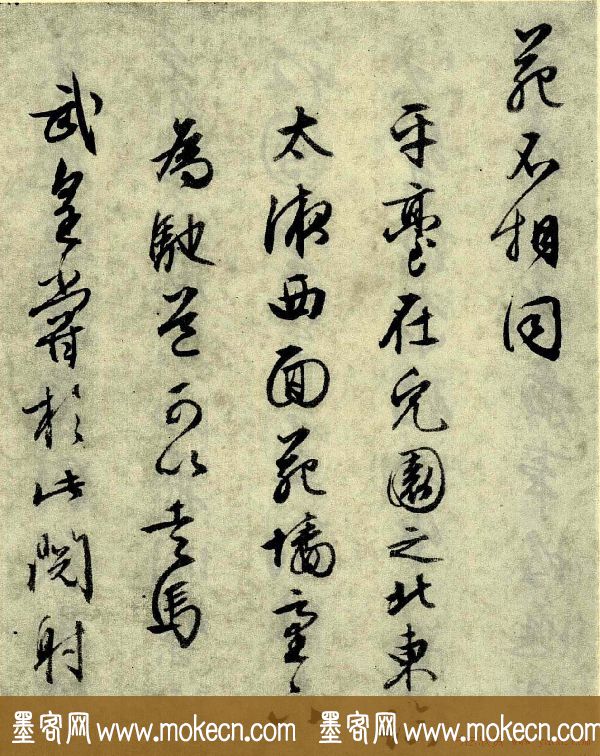 苑不相同
平臺在兔園之北東
太液西面苑墻臺
為馳道可以走馬
武皇嘗於此閱射
墨客网 www.mokecn.com 墨客网 www.mokecn.com